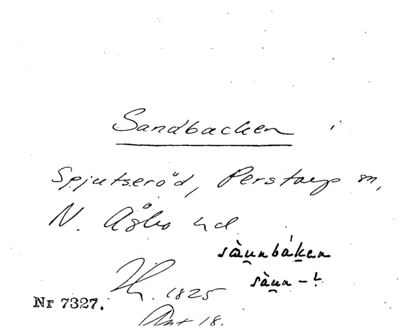 Sandbacken
Spjutseröd, Perstorp sn,
N. Åsbo hd
sàu̲nbák̲en
sàu̲n-
1825
Nr 7327.